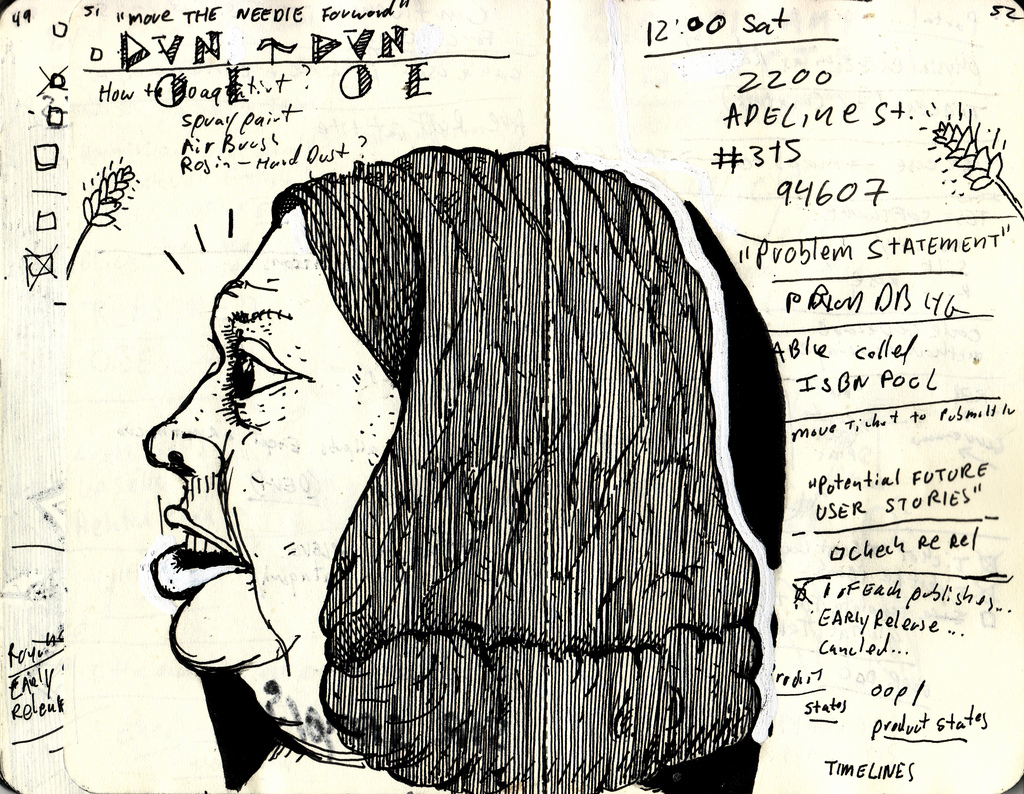 49
51
"move THE NEEDLE Forward"
How to
spray paint
Air Brush
Rosin - Hand Dust?
Early
Release
52
12:00 Sat
2200
ADELINE St.
#315
94607
"Problem STATEMENT"
ABle collel
ISBN POOL
move Ticket to
"Potential FUTURE
USER STORIES"
check RE Rel
1 of Each publisher...
EARLY Release...
Canceled...
states
oop/
product states
TIMELINES